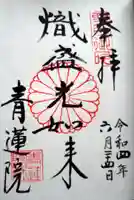 奉拝
熾盛光如来
青蓮院
令和四年
六月二十四日